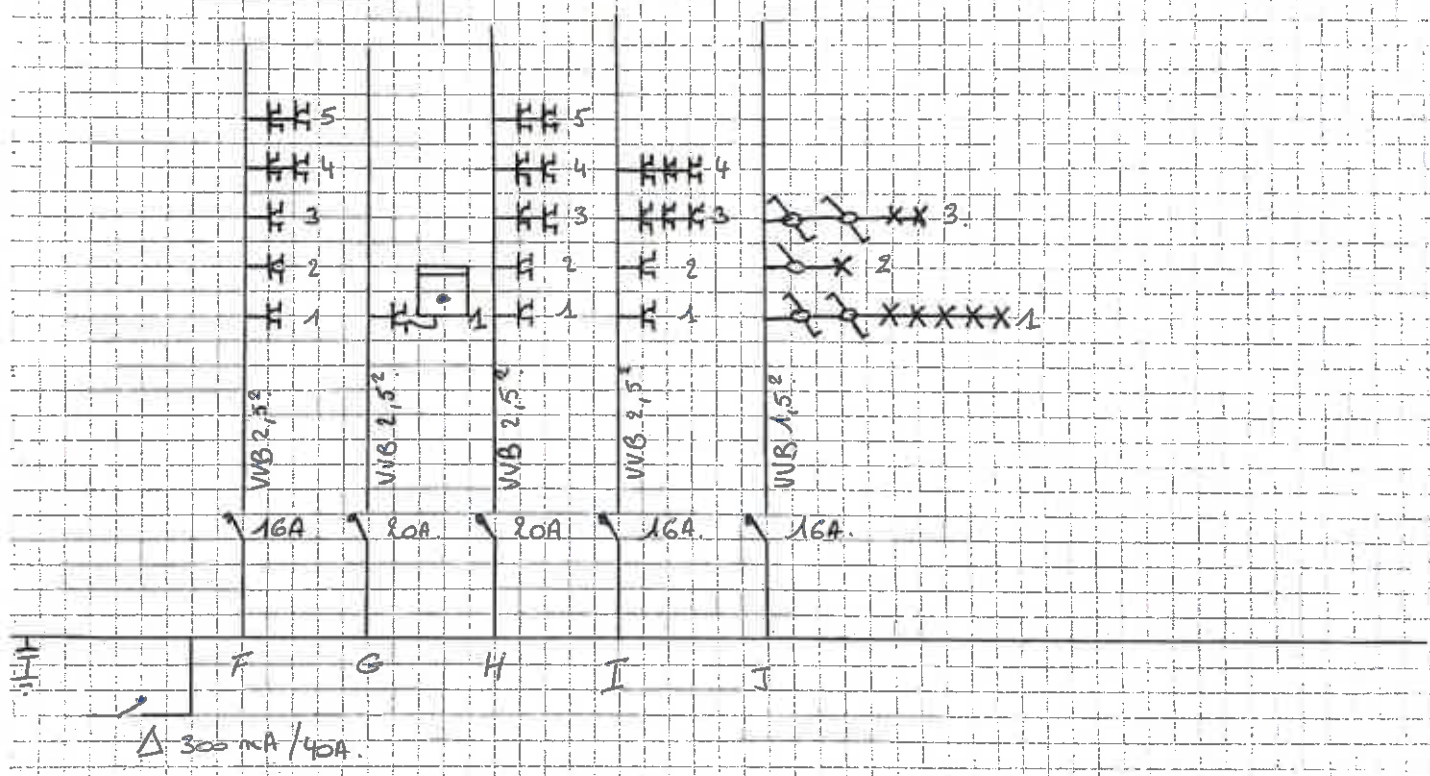 5 5
4 4 4
3 3 3 3.
2 2 2 2
1 1 1 1 1
VVB 2,5² VVB 2,5² VVB 2,5² VVB 2,5² VVB 1,5²
16A 20A. 20A 16A. 16A.
II F G H I J
Δ 300 mA/40A.